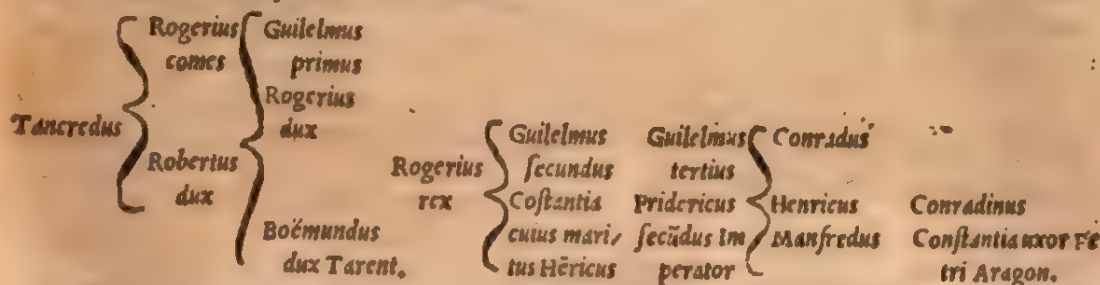 Tancredus
Rogerius
comes
Robertus
dux
Guilelmus
primus
Rogerius
dux
Boëmundus
dux Tarent.
Rogerius
rex
Guilelmus
ſecundus
Coſtantia
cuius mari/
tus Hēricus
Guilelmus
tertius
Pridericus
ſecūdus Im
perator
Conradus
Henricus
Manfredus
Conradinus
Conſtantia uxor Pe
tri Aragon.